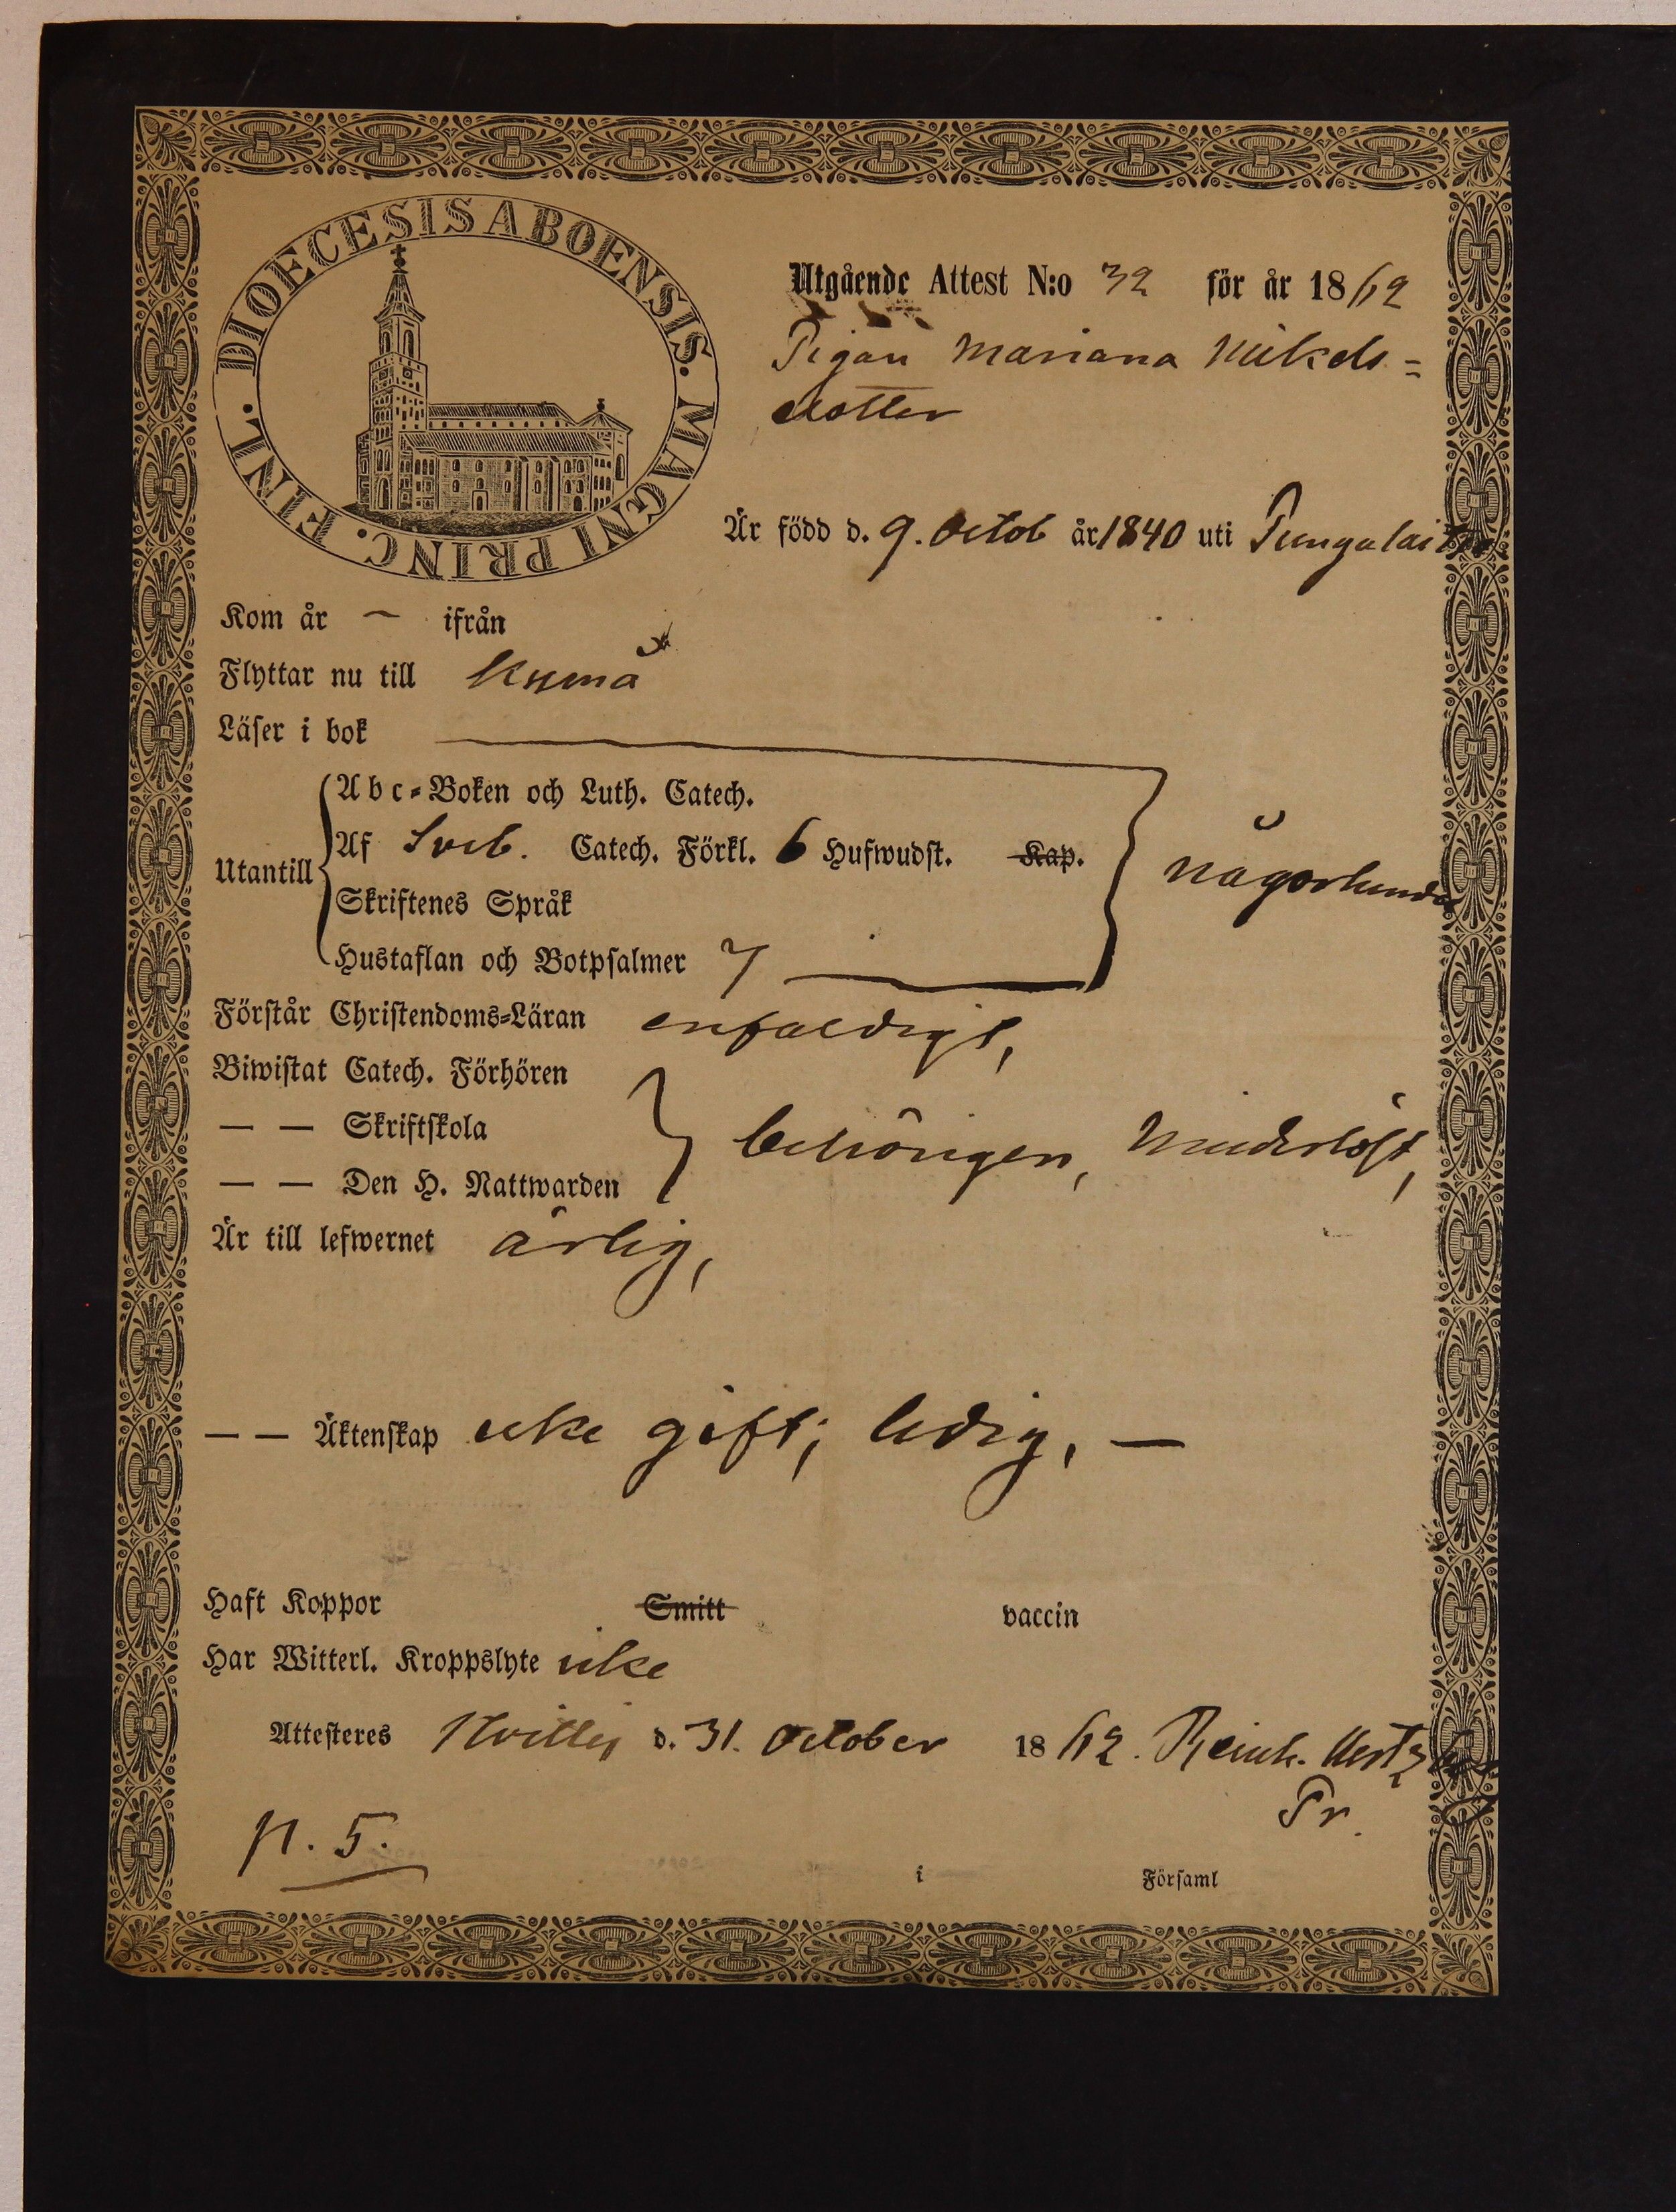 DIOECESIS ABOENSIS. MAGNI PRINC. FINL.
Utgående Attest N:o 32 för år 1862
Pigan Mariana Mikels=
dotter
Är född d. 9. Octob år 1840 uti Pungalaitio
Kom år — ifrån
Flyttar nu till Kumå
Läser i bok
Utantill
Abc-Boken och Luth. Catech.
Af Sveb. Catech. Förkl. 6 Hufwudst. Kap.
Skriftenes Språk
Hustaflan och Botpsalmer 7
någorlunda
Förstår Christendoms-Läran enfaldigt,
Biwistat Catech. Förhören
— — Skriftskola
— — Den H. Nattwarden
behörigen,
Är till lefwernet ärlig,
— — Äktenskap icke gift; ledig, —
Haft Koppor Smitt vaccin
Har Witterl. Kroppslyte icke
Attesteres d. 31. October 1862. Reinh. Hertzberg
Pr.
p. 5.
i Församl